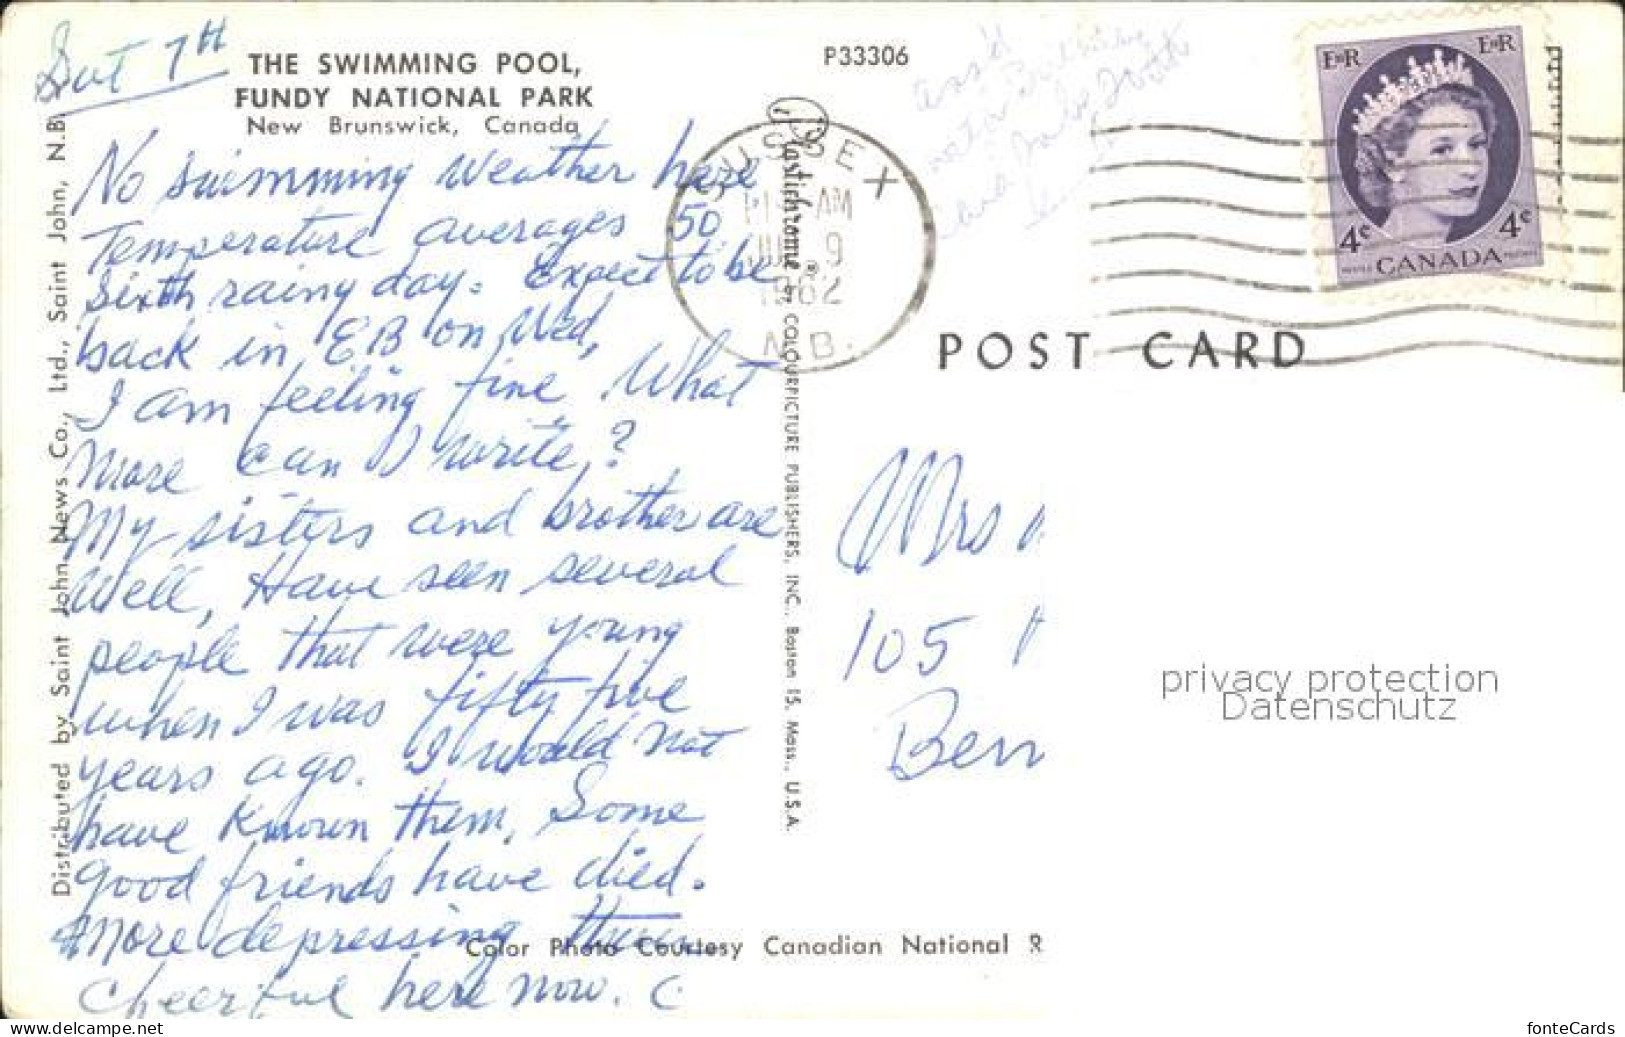 Sat 7th
THE SWIMMING POOL,
FUNDY NATIONAL PARK
New Brunswick, Canada
No swimming weather here
Temperature averages 50
Sixth rainy day. Expect to be
back in EB on Wed,
I am feeling fine. What
more can I write,?
My sisters and brother are
well, Have seen several
people that were young
when I was fifty five
years ago. I would not
have known them, Some
good friends have died.
More depressing than
cheerful here now. C.
Distributed by Saint John News Co., Ltd., Saint John, N.B.
Plastichrome ® by COLOURPICTURE PUBLISHERS, INC., Boston 15, Mass., U.S.A.
Color Photo Courtesy Canadian National R
P33306
SUSSEX
AM
9
1962
N.B.
E R
E R
4c
4c
CANADA
POST CARD
Mrs
105
Ben
privacy protection
Datenschutz
www.delcampe.net
fonteCards